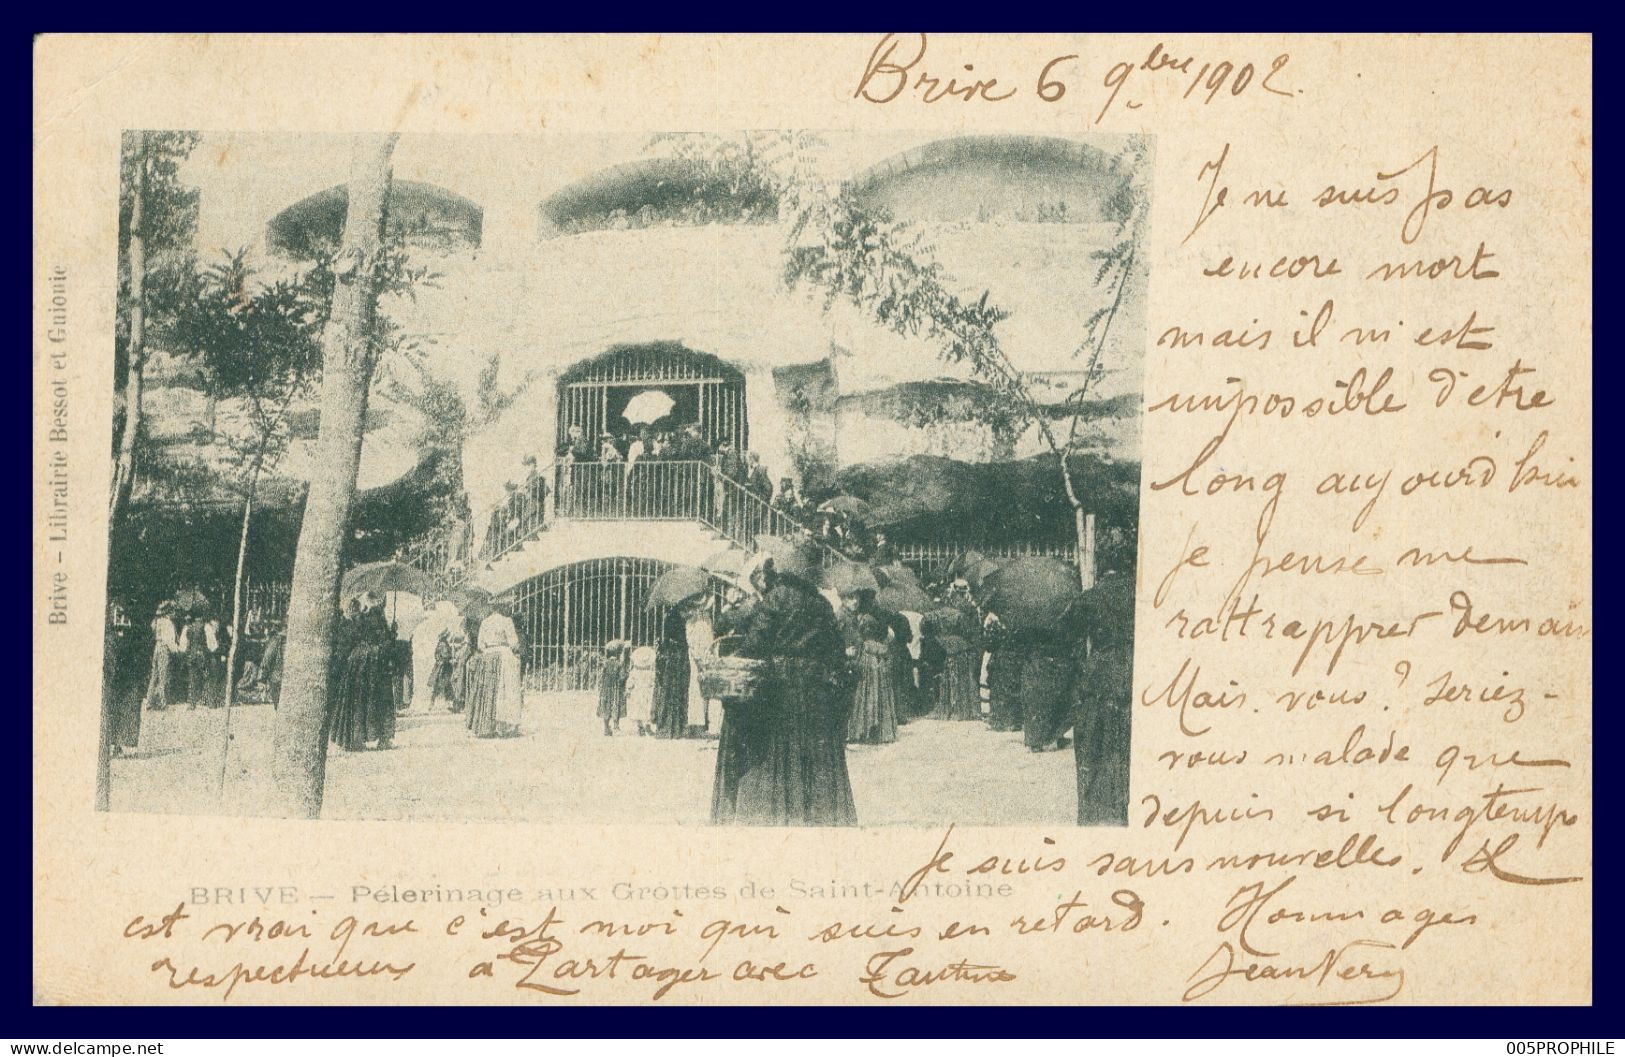 Brive 6 9bre 1902.
Je ne suis pas
encore mort
mais il m'est
impossible d'etre
long aujourd'hui
je pense me
rattrapper demain
Mais vous? seriez-
vous malade que
depuis si longtemps
je suis sans nouvelles. Il
est vrai que c'est moi qui suis en retard. Hommages
respectueux à partager avec Tantine
Jean
BRIVE — Pélerinage aux Grottes de Saint-Antoine
Brive – Librairie Bessot et Guionie
www.delcampe.net
005PROPHILE